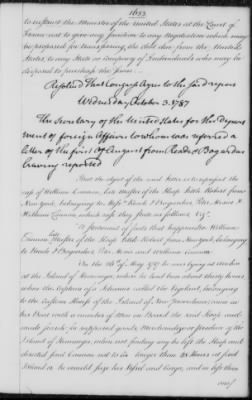 1693
to instruct the Minister of the United States at the Court of
France not to give any sanction to any Negotiation which may
be proposed for transferring the debt due from the United
States, to any State or Company of Individuals who may be
disposed to purchase the same.
Resolved That Congress Agree to the said report
Wednesday October 3. 1787
The Secretary of the United States for the Depart
ment of foreign Affairs to whom was referred a
letter of the first of August from Reade & Bogardus
having reported
That the object of the said letter is to represent the
case of William Cannon, late Master of the Sloop Little Robert from
New york, belonging to Reade & Bogardus,
William Cannon, which case they state as follows Viz
A statement of facts that happened to William
Cannon late Master of the Sloop Little Robert from New york, belonging
to Reade & Bogardus and William Cannon
On the of May 1787 he was lying at anchor
at the Island of Heneaga, where he had been about thirty hours
when the Captain of a Schooner called the
to the Custom House of the Island of New Providence, came in
his Boat with a number of Men on Board the said Sloop and
made search for supposed goods, Merchandize or produce of the
Island of Heneaga, when not finding any he left the Sloop and
directed said Cannon not to lie longer than 24 Hours at said
Island or he would seize his Vessel and Cargo, and so left them